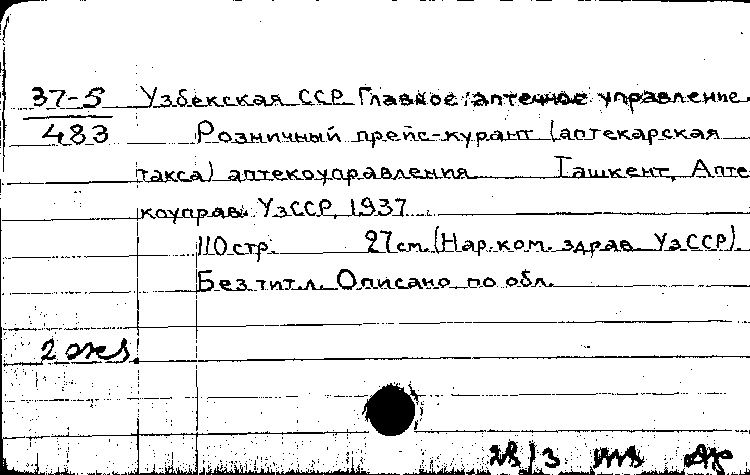 37-5 Узбекская ССР Главное аптечное управление.
483 Розничный прейс-курант (аптекарская
такса) аптекоуправления Ташкент, Апте
коуправ. УзССР, 1937
110 стр. 27 см. (Нар. ком. здрав. УзССР).
Без тит. л. Описано по обл.
2 экз.